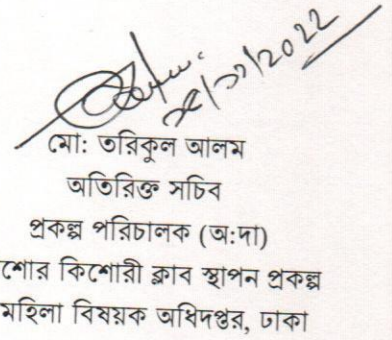 মো: তরিকুল আলম
অতিরিক্ত সচিব
প্রকল্প পরিচালক (অ:দা)
শোর কিশোরী ক্লাব স্থাপন প্রকল্প
মহিলা বিষয়ক অধিদপ্তর, ঢাকা